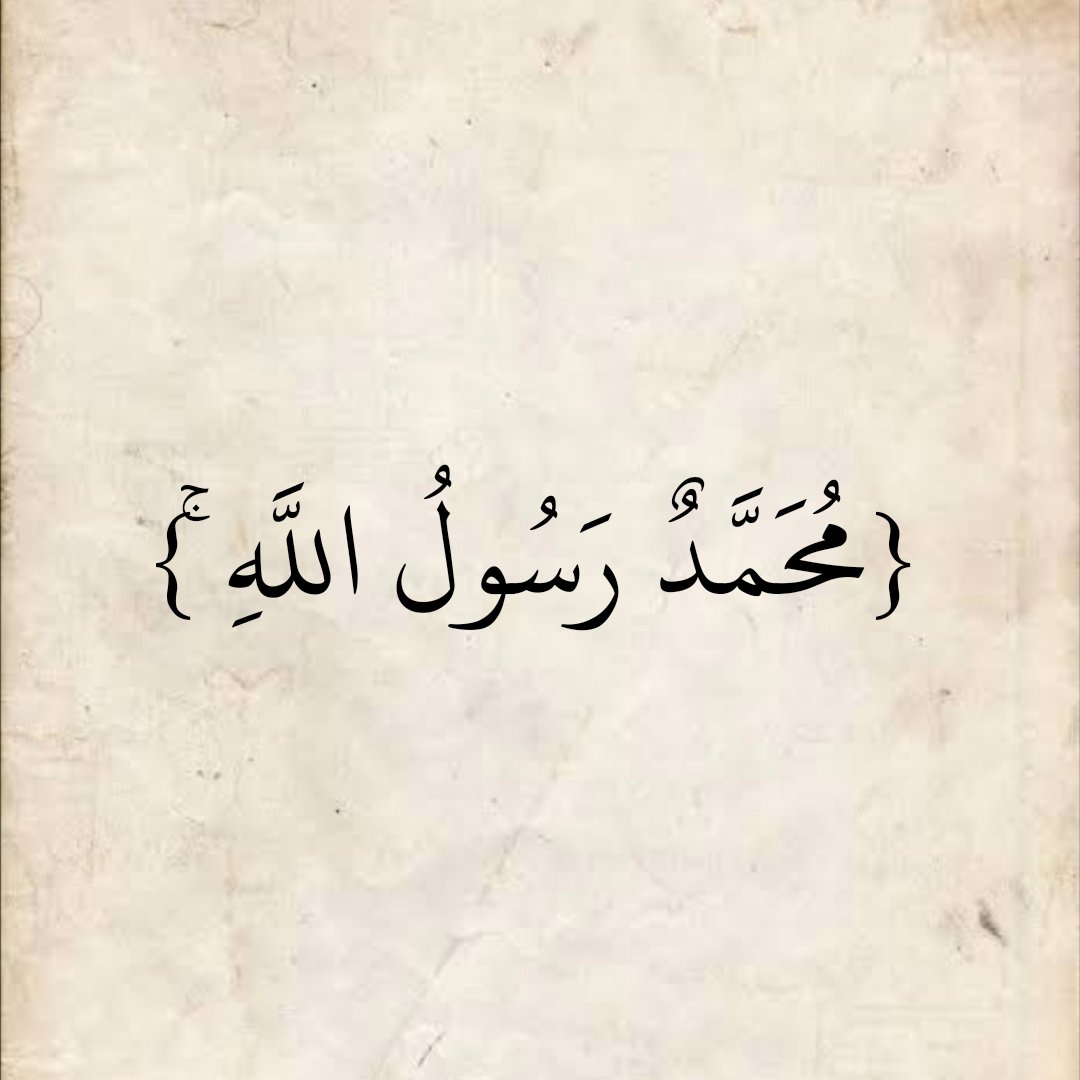 {مُحَمَّدٌ رَسُولُ اللَّهِ ۚ}